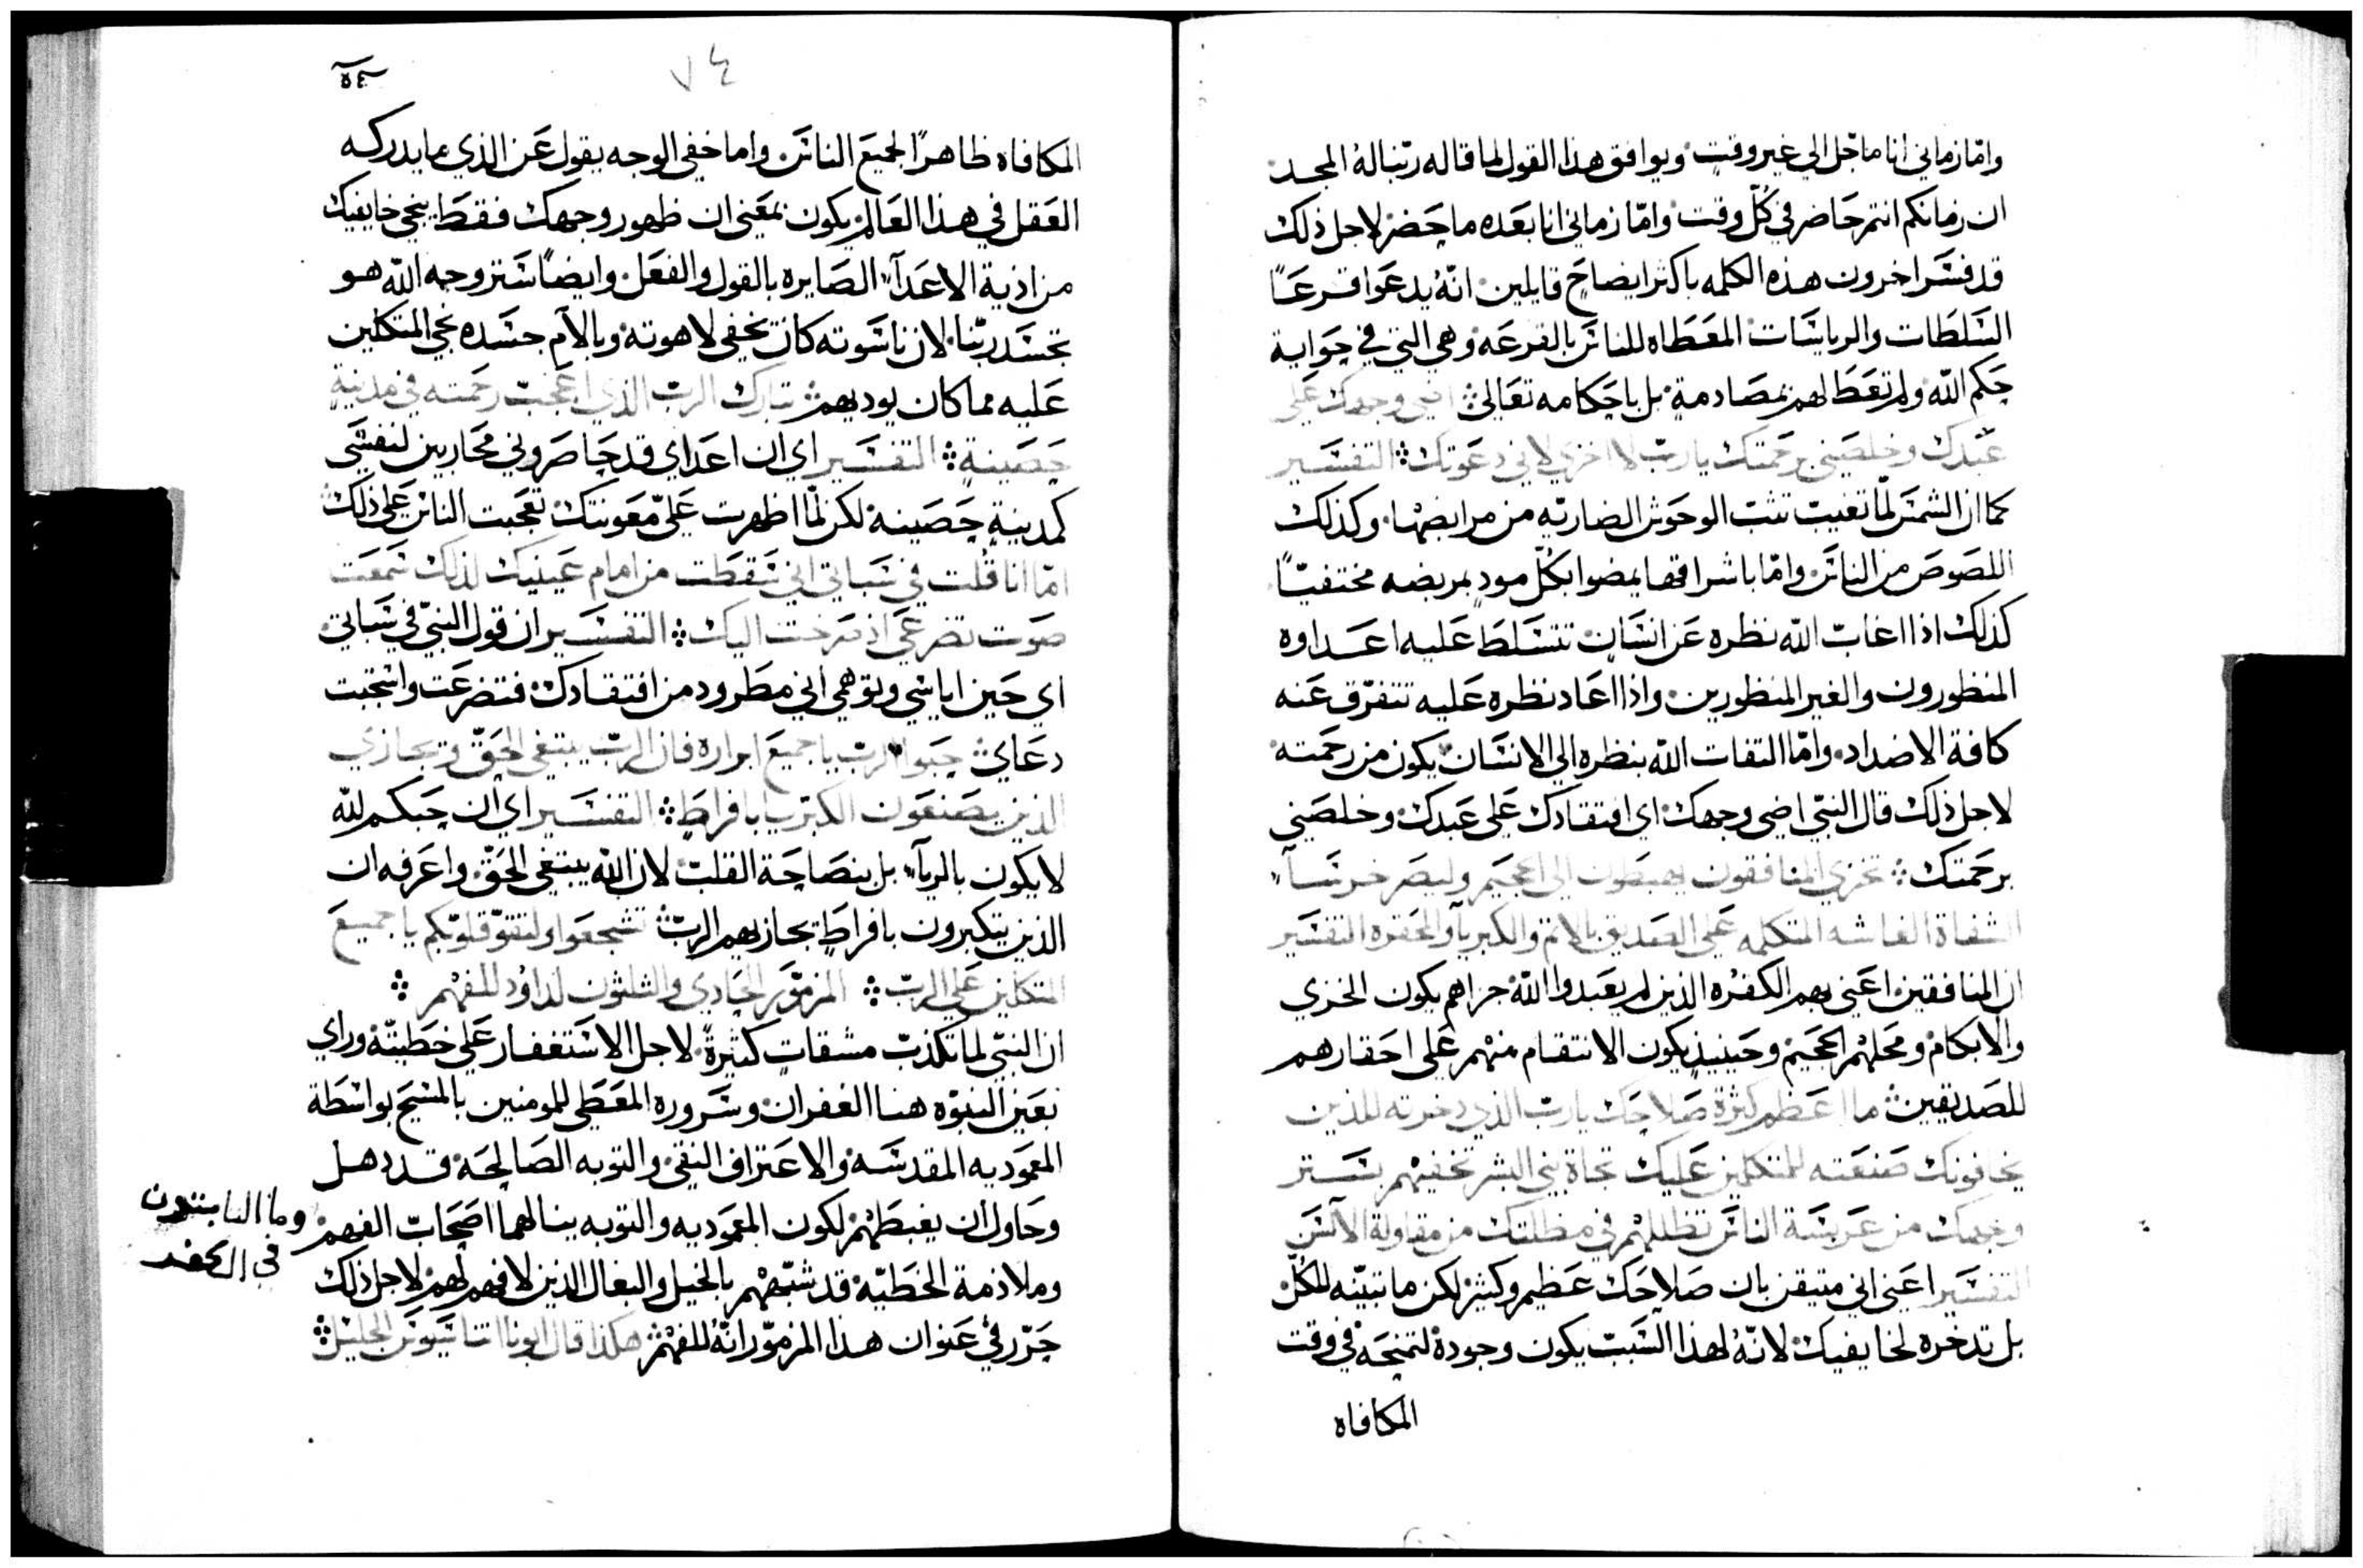 وامّا زماني انا ما حل الي غير وقت وبوافق هذا القول لما قاله ربنا له المجد
ان زمانكم انتم حاضر في كلّ وقت وامّا زماني انا بعده ما حضر لاجل ذلك
قد فسر اخرون هذه الكلمه باكثر ايضاح قايلين انّه يدعوا قرعًا
السلطات والرياسات المعطاه للناس بالقرعه وهي التي في
حكم الله ولم تعط لهم بمصادمة بل باحكامه تعالي اضي وجهك علي
عبدك وخلصني برحمتك يا رب لا اخزي لاني دعوتك التفسير
كما ان الشمس لمّا تغيب تثب الوحوش الضاريه من مرابضها وكذلك
اللصوص من الناس وامّا باشراقها يمضوا بكلّ مود بمربضه مختفيًا
كذلك اذا اغاب الله نظره عن انسان تتسلط عليه اعداوه
المنظورون والغير المنظورين واذا اعاد نظره عليه تتفرّق عنه
كافة الاضداد وامّا التفات الله بنظره الي الانسان يكون من رحمته
لاجل ذلك قال النبي اضي وجهك اي افتقادك علي عبدك وخلصني
برحمتك تخزي المنافقون يهبطون الي الجحيم ولتصر خرساً
الشفاة الغاشه المتكلمه علي الصديق بالاثم والكبريا والمحقره التفسير
ان المنافقين اعني بهم الكفره الذين لم يعبدوا الله جزاهم يكون الخزي
والابكام ومحلهم الجحيم وحينيذ يكون الانتقام منهم علي احقارهم
للصديقين ما اعظم كثرة صلاحك يا رب الذي دخرته للذين
يخافونك صنعته للمتكلين عليك تجاة بني البشر تخفيهم بستر
وجهك من عربسة الناس تظللهم في مظلتك من مقاولة الالسن
التفسير اعني اني متيقن بان صلاحك عظيم وكثير لكن ما تبيّنه للكلّ
بل تدخره لخايفيك لانّه لهذا السبب يكون وجوده لتمنحه في وقت
المكافاه
٥٤
٧٤
المكافاه ظاهرًا لجميع الناس واما خفي الوجه يقول عن الذي ما يدركه
العقل في هذا العالم يكون بمعني ان ظهور وجهك فقط ينجي خايفيك
من اذية الاعدآ الصايره بالقول والفعل وايضًا ستر وجه الله هو
تجسد ربّنا لان ناسوته كان يخفي لاهوته وبالآم جسده نجي المتكلين
عليه مما كان يوديهم تبارك الرب الذي اعجب رحمته في مدينة
حصينة التفسير اي ان اعداي قد حاصروني محاربين لنفسي
كمدينة حصينه لكن لمّا اظهرت عليّ معونتك تعجبت الناس علي ذلك
امّا انا قلت في سباتي اني سقطت من امام عينيك لذلك سمعت
صوت تضرعي اذ صرخت اليك التفسير ان قول النبّي في سباتي
اي حين اياسي وتوهمي اني مطرود من افتقادك فتضرعت واستجبت
دعاي حبوا الرب يا جميع ابراره فان الرب يبتغي الحق وتجازي
الذين يصنعون الكبريا بافراط التفسير اي ان حبكم لله
لا يكون بالريآ بل بنصاحة القلب لان الله يبتغي الحق واعرفه ان
الذين يتكبرون بافراط يجازيهم الرب تشجعوا ولتقوّ قلوبكم يا جميع
المتكلين علي الرب المزمور الحادي والثلثون لداود للفهم
ان النبي لما تكذب مشقات كثيرة لاجل الاستغفار علي خطيته وراي
بعين النبوّه هنا الغفران وسروره المعطي للمومنين بالمسيح بواسطة
المعموديه المقدسه والاعتراف النقي والتوبه الصالحه قد دهل
وحاول ان يغبطهم لكون المعموديه والتوبه ينالهما اصحاب الفهم وما النابتون
في الكفر
وملاذمة الخطيّه قد شبّههم بالخيل والبغال الذين لا فهم لهم لاجل ذلك
حرّر في عنوان هذا المزمور انّه للفهم هكذا قال ابونا اتناسيوس الجليل